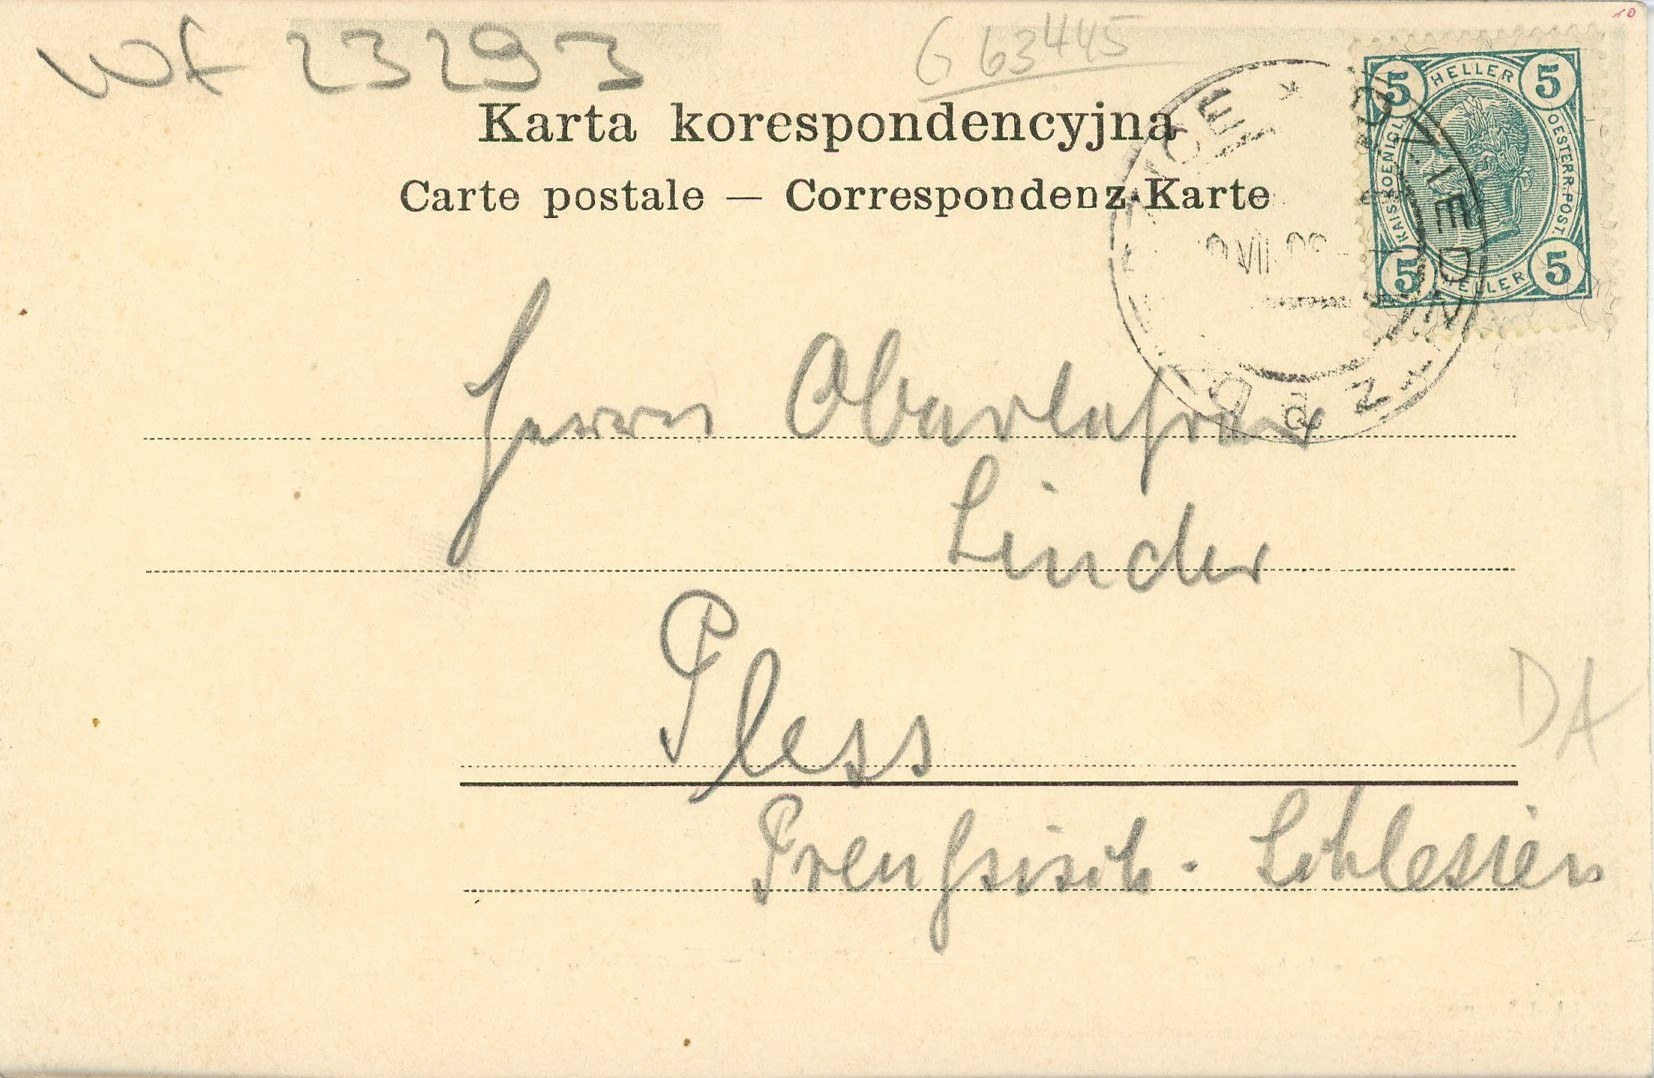 Wf 23293
G 63445
Karta korespondencyjna
Carte postale — Correspondenz-Karte
5 HELLER 5
KAIS. KOENIGL. OESTERR. POST.
5 HELLER 5
DZIEDZITZ
Herrn Oberlehrer
Linder
Pless
DA
Preußisch - Schlesien